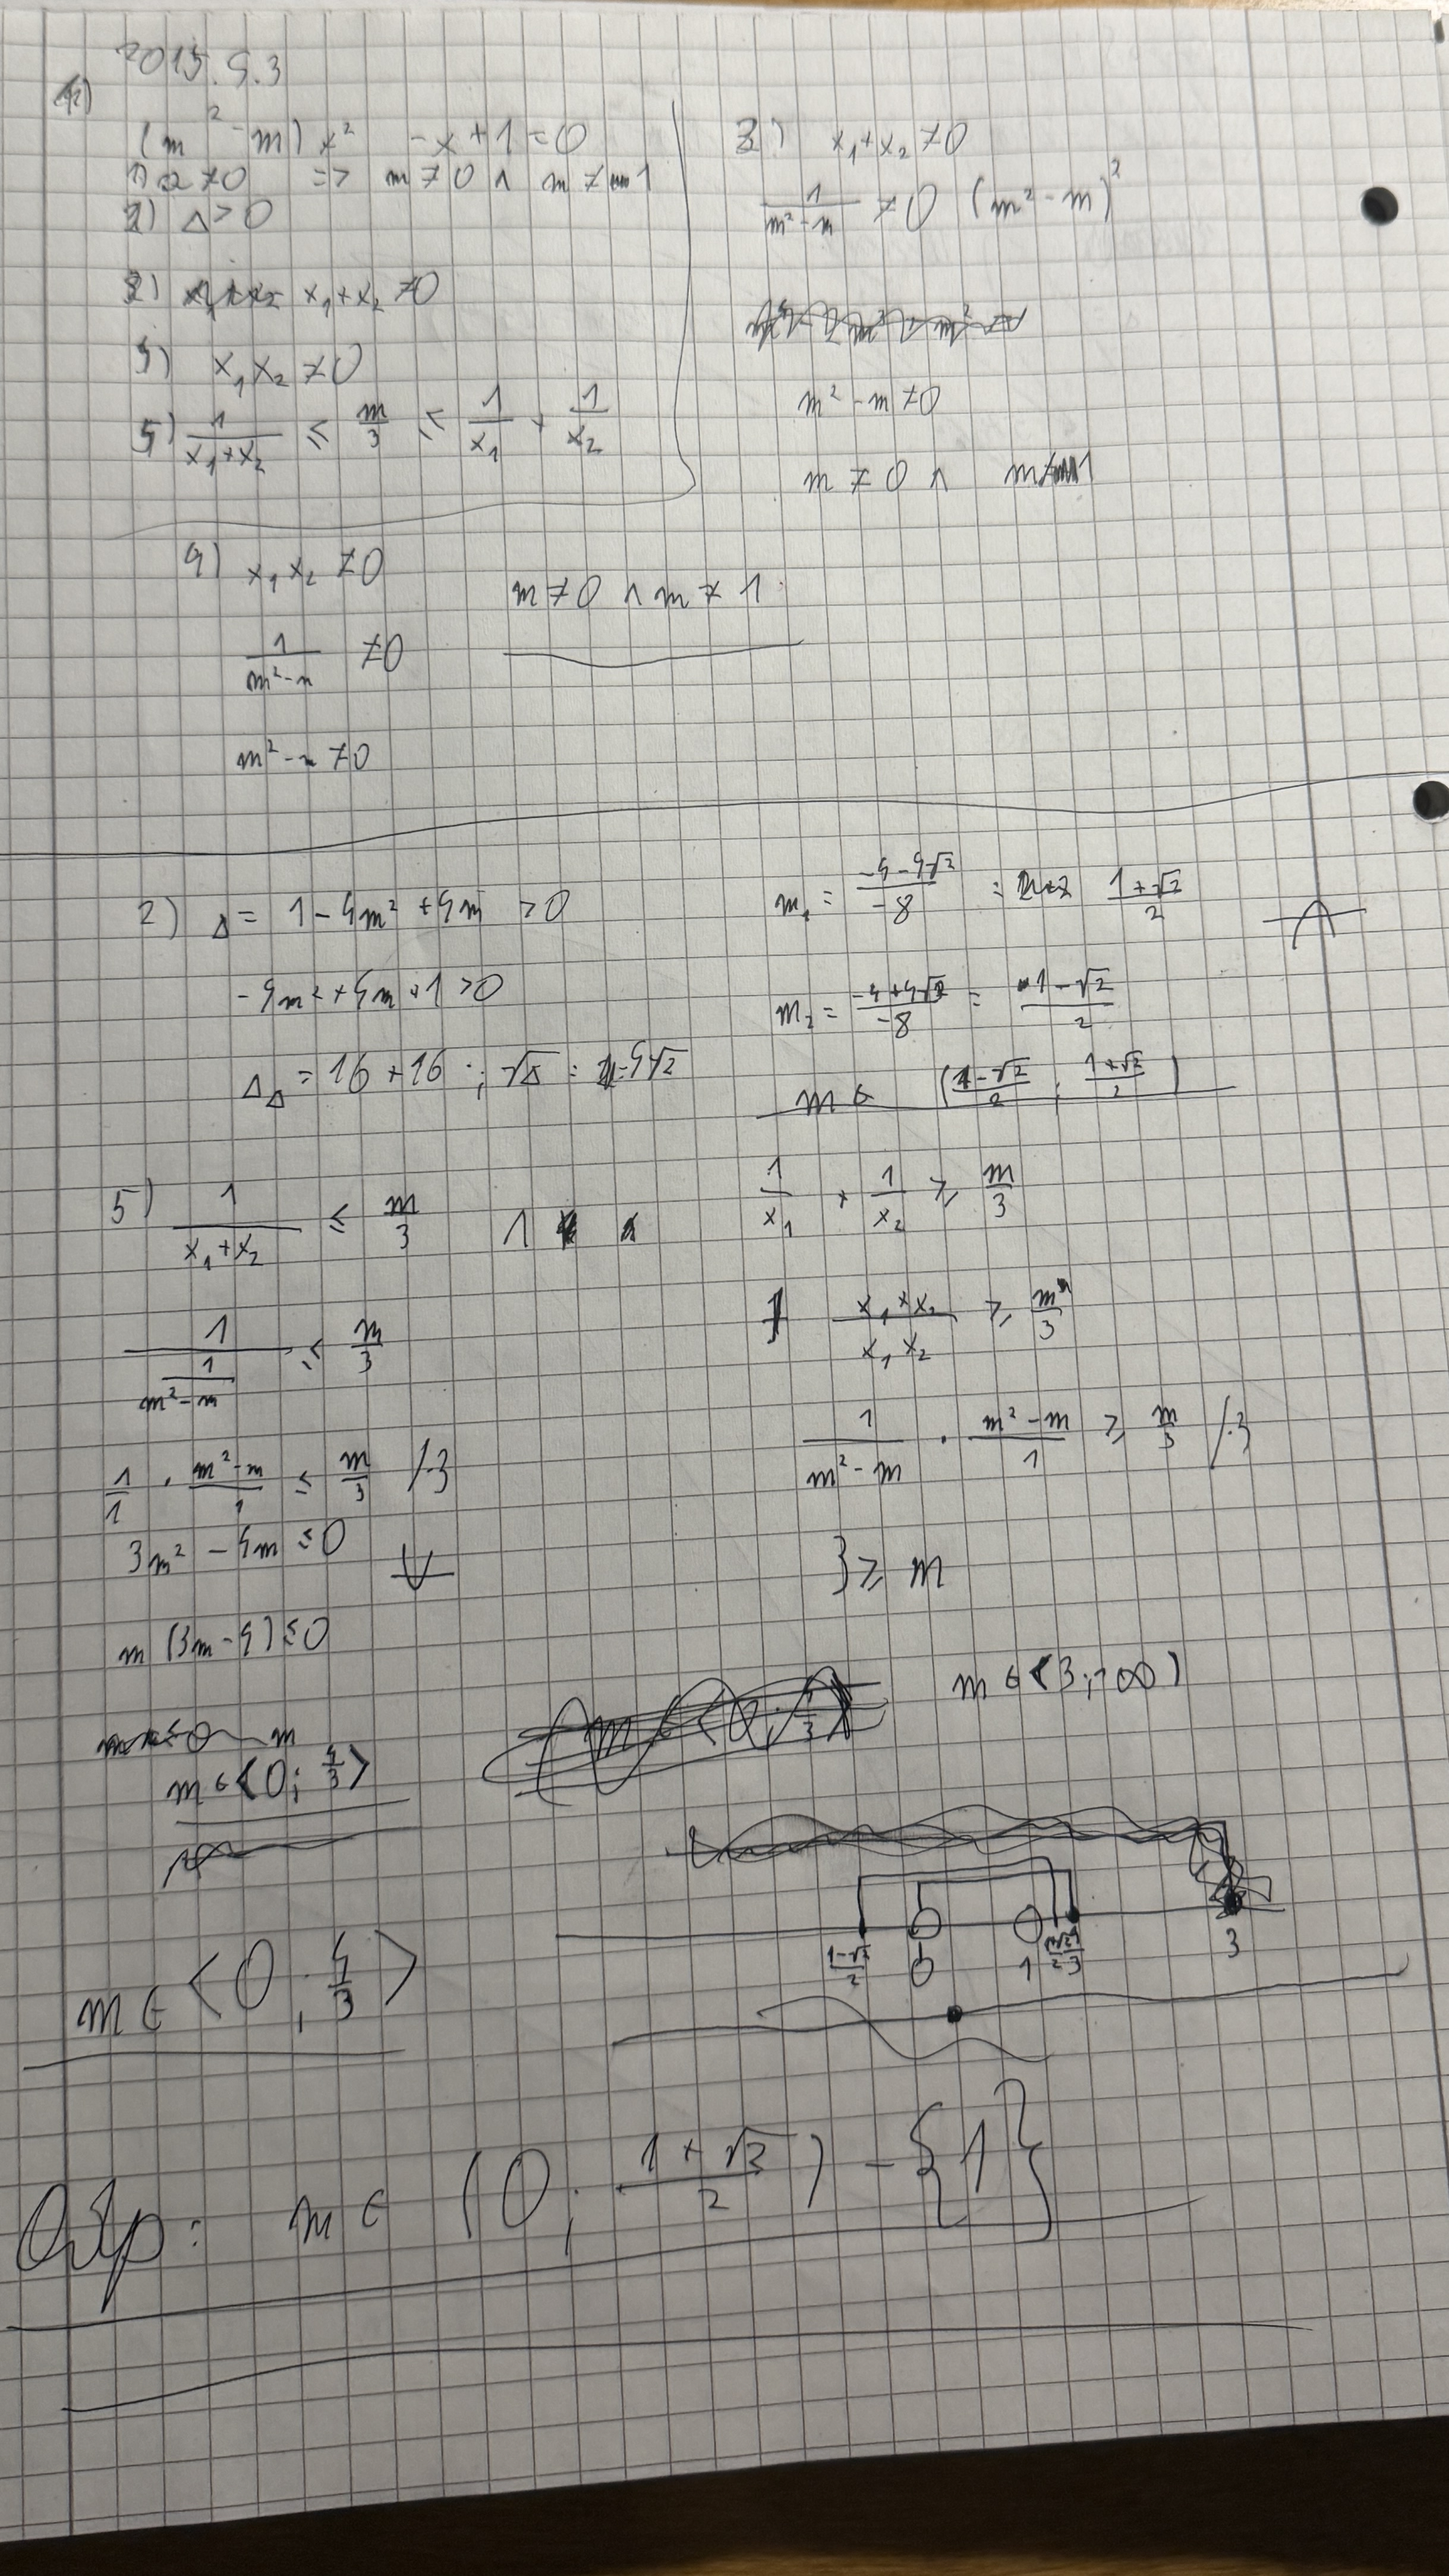 2015.5.3
(m² - m) x² - x + 1 = 0
1) a ≠ 0 => m ≠ 0 ∧ m ≠ 1
2) Δ > 0
3) x₁ + x₂ ≠ 0
4) x₁ x₂ ≠ 0
5) 1/(x₁+x₂) ≤ m/3 ≤ 1/x₁ + 1/x₂
3) x₁ + x₂ ≠ 0
1/(m²-m) ≠ 0 (m² - m)²
m² - m ≠ 0
m ≠ 0 ∧ m ≠ 1
4) x₁ x₂ ≠ 0
1/(m²-m) ≠ 0
m² - m ≠ 0
m ≠ 0 ∧ m ≠ 1
2) Δ = 1 - 4m² + 4m > 0
-4m² + 4m + 1 > 0
Δ_Δ = 16 + 16 ; √Δ = 4√2
m₁ = (-4-4√2)/-8 = (1+√2)/2
m₂ = (-4+4√2)/-8 = (1-√2)/2
m ∈ ((1-√2)/2 ; (1+√2)/2)
5) 1/(x₁+x₂) ≤ m/3 ∧
1/(1/(m²-m)) ≤ m/3
1/1 · (m²-m)/1 ≤ m/3 /·3
3m² - 4m ≤ 0
m (3m - 4) ≤ 0
m ∈ <0; 4/3>
m ∈ <0; 4/3>
1/x₁ + 1/x₂ ≥ m/3
(x₁+x₂)/(x₁x₂) ≥ m/3
1/(m²-m) · (m²-m)/1 ≥ m/3 /·3
3 ≥ m
m ∈ <3; -∞)
(1-√2)/2 0 1 3
Odp: m ∈ (0; (1+√2)/2) - {1}